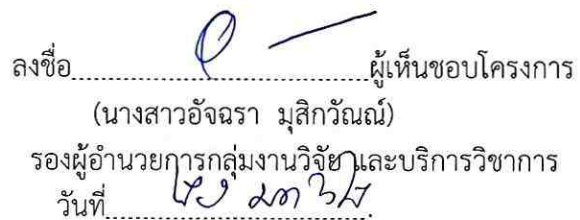 ลงชื่อ........................................................ผู้เห็นชอบโครงการ
(นางสาวอัจฉรา มุสิกวัณณ์)
รองผู้อำนวยการกลุ่มงานวิจัยและบริการวิชาการ
วันที่........................................................